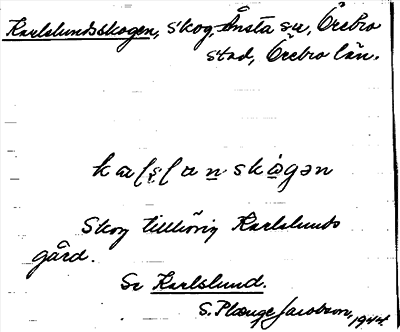 Karlslundsskogen, skog, Ånsta sn, Örebro
stad, Örebro län.
Skog tillhörig Karlslunds
gård.
Se Karlslund.
S. Plænge Jacobson, 1944.